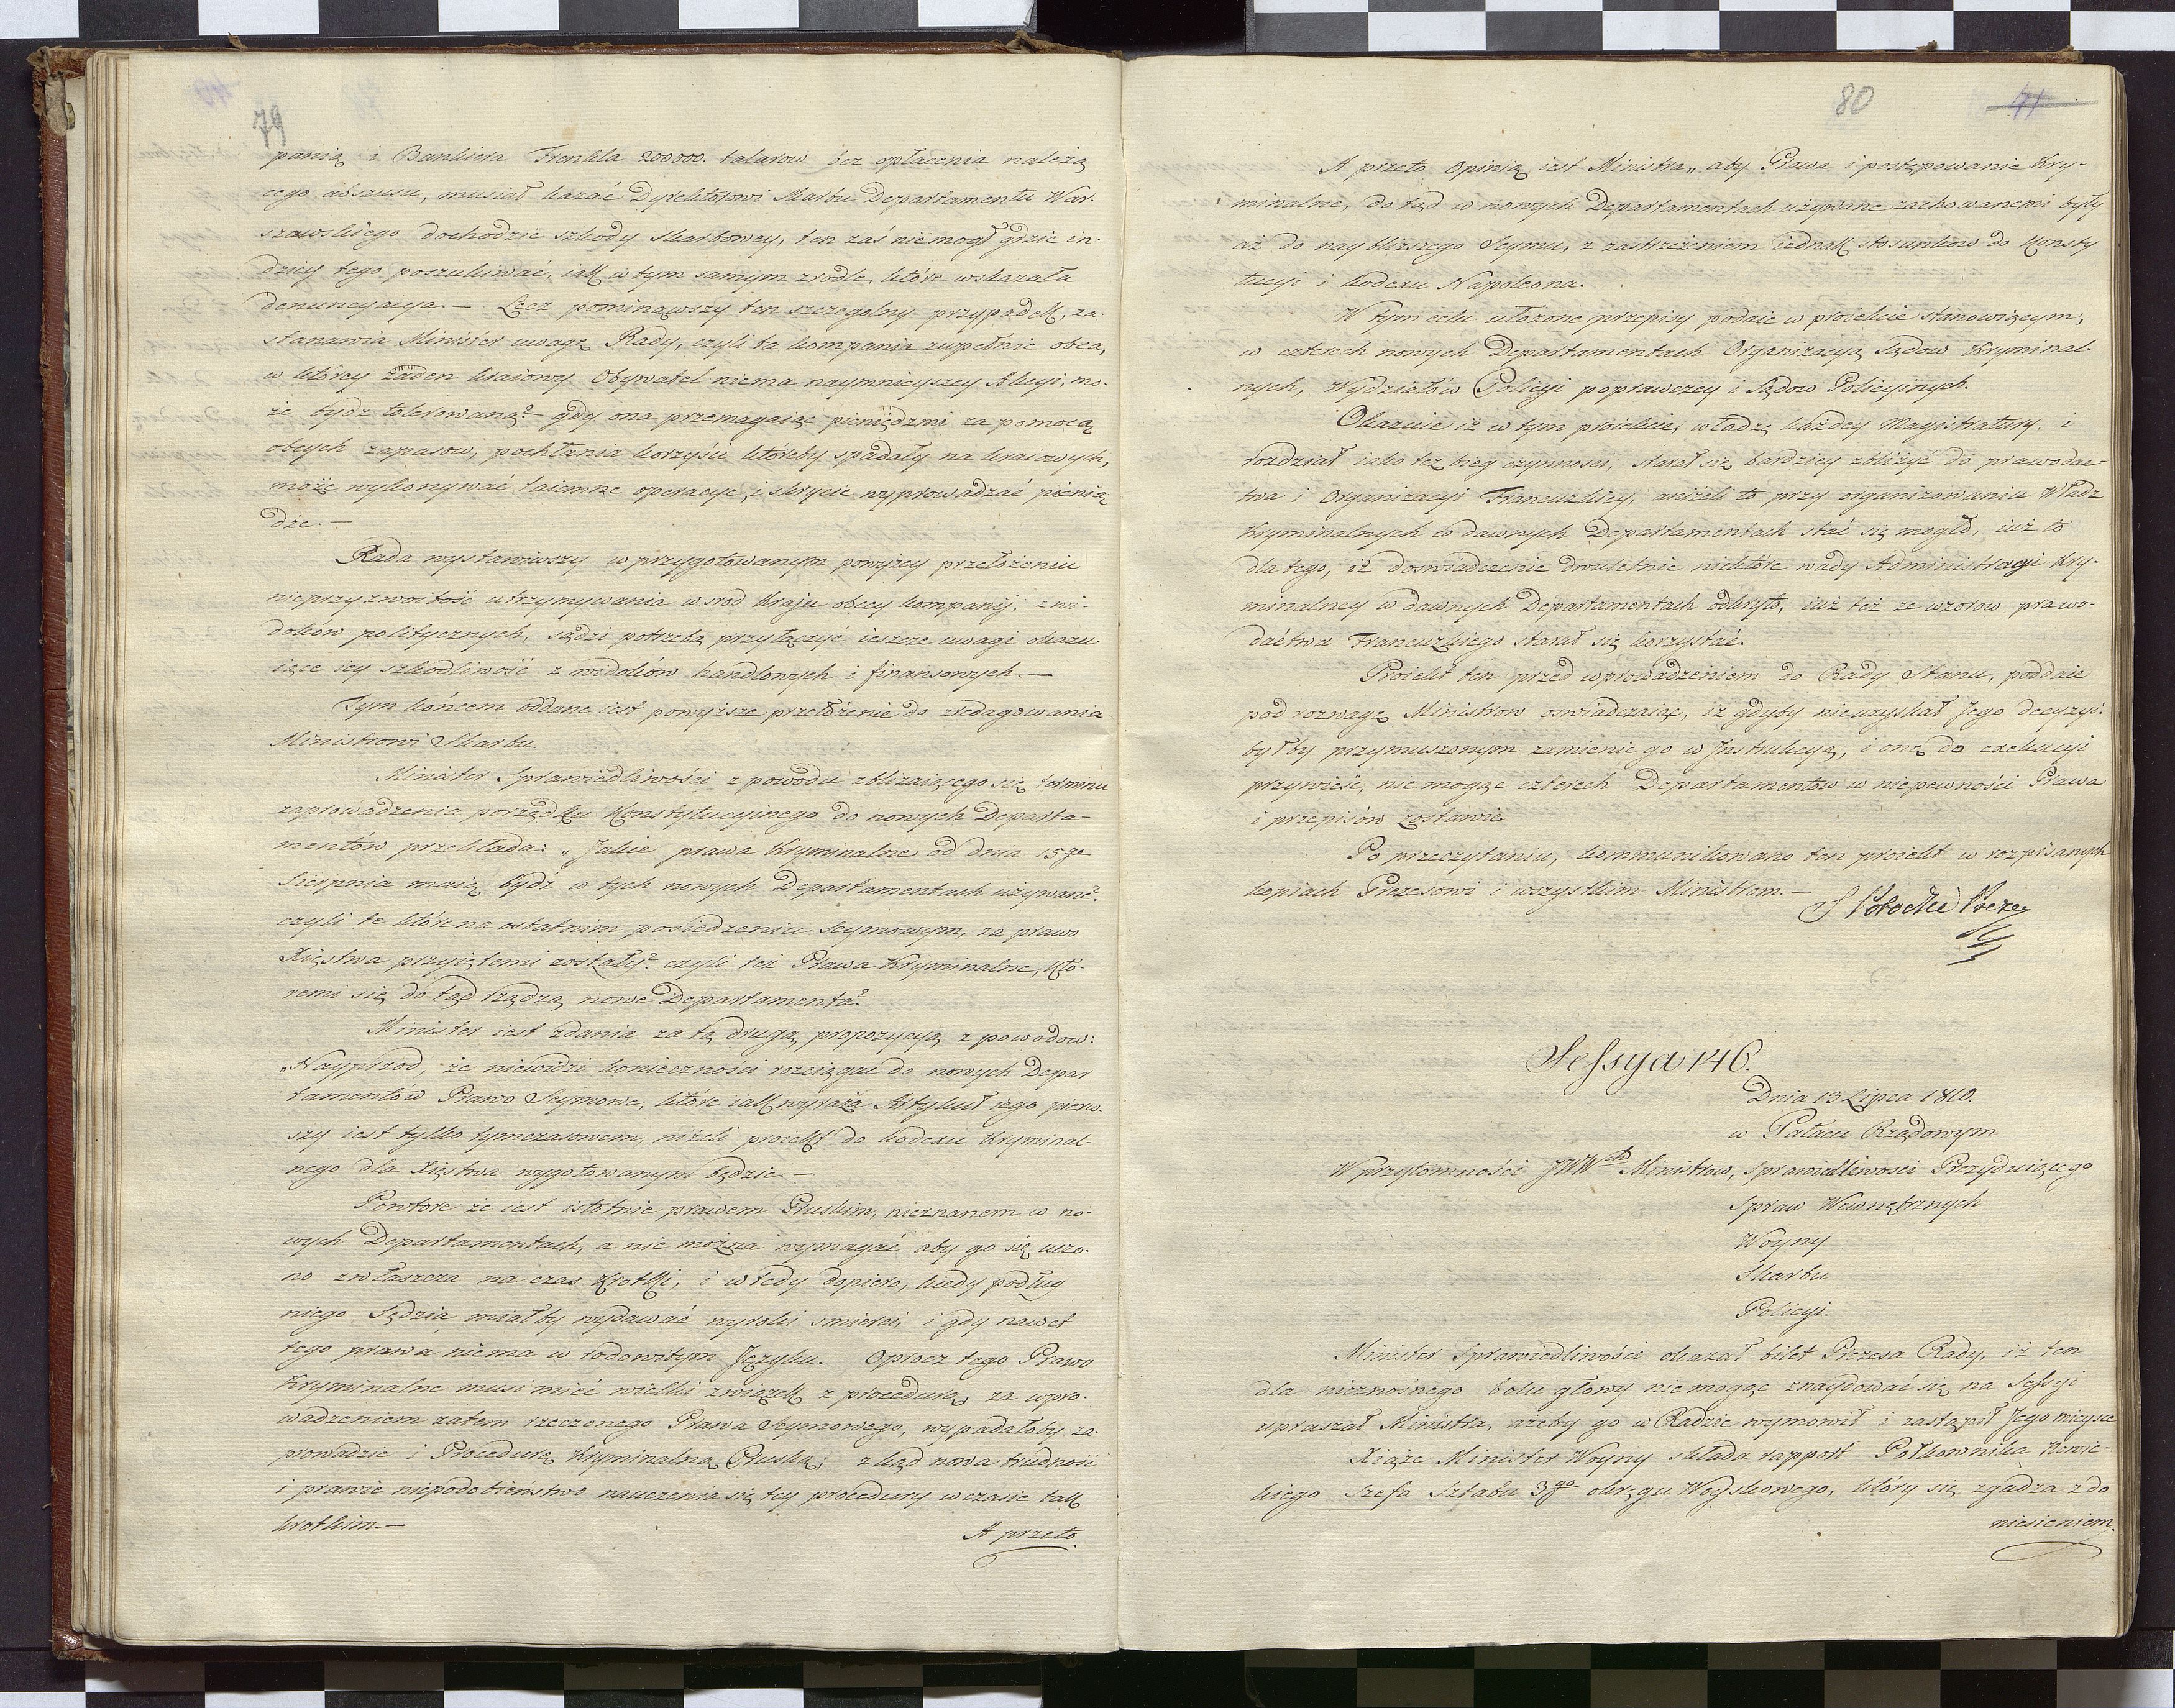 79
panią i Bankiera Frenkla 200000. talarow bez opłacenia należą
cego abszusu, musiał kazać Dyrektorowi Skarbu Departamentu War-
szawskiego dochodzic szkody skarbowey, ten zaś niemogł gdzie in-
dziey tego poszukiwać, iak w tym samym zrodle, które wskazała
denuncyacya. — Lecz pominąwszy ten szczegolny przypadek, za-
stanawia Minister uwagę Rady, czyli ta kompania zupełnie obca,
w którey żaden kraiowy Obywatel niema naymnieyszey Akcyi, mo-
że bydz tolerowaną? — gdy ona przemagaiąc pieniędzmi za pomocą
obcych zapasow, pochłania korzyści któreby spadały na kraiowych,
może wykonywać taiemne operacye, i skrycie wyprowadzać pienią
dze. —
Rada wystawiwszy w przygotowanym powyżey przełożeniu
nieprzyzwoitość utrzymywania w srod Kraju obcey kompanij, z wi-
doków politycznych, sądzi potrzebą przyłączyć ieszcze uwagi okazu-
iące iey szkodliwość z widoków handlowych i finansowych. —
Tym końcem oddane iest powyższe przełożenie do zredagowania
Ministrowi Skarbu.
Minister Sprawiedliwości z powodu zbliżaiącego się terminu
zaprowadzenia porządku Konstytucyinego do nowych Departa-
mentów przekłada: „Jakie prawa Kryminalne od dnia 15go
Sierpnia maią bydź w tych nowych Departamentach używane?
czyli te które na ostatnim posiedzeniu Seymowym, za prawo
Xięstwa przyiętemi zostały? czyli też Prawa Kryminalne, któ-
remi się do tąd rządzą nowe Departamenta?
Minister iest zdania za tą drugą propozycyą z powodow:
„Nayprzod, że niewidzi konieczności rozciągać do nowych Depar
tamentów Prawo Seymowe, które iak wyraża Artykuł iego pierw-
szy iest tylko tymczasowem, niżeli proiekt do kodexu Kryminal-
nego dla Xięstwa wygotowanym będzie —
Powtore że iest istotnie prawem Pruskim, nieznanem w no-
wych Departamentach, a nie można wymagać aby go się uczo-
no zwłaszcza na czas krotki, i wtedy dopiero, kiedy podług
niego Sędzia miałby wydawać wyroki smierci, i gdy nawet
tego prawa niema w rodowitym Języku. Oprocz tego Prawo
Kryminalne musi mieć wielki związek z procedurą, za wpro-
wadzeniem zatem rzeczonego Prawa Seymowego, wypadałoby za-
prowadzić i Procedurę Kryminalną Pruską; z kąd nowa trudność
i prawie niepodobieństwo nauczenia się tey procedury w czasie tak
krotkim. —
A przeto.
80
41
A przeto Opinią iest Ministra, „aby Prawa i postępowanie Kry-
minalne, do tąd w nowych Departamentach używane zachowanemi były
aż do naybliższego Seymu, z zastrzeżeniem iednak stosunkow do Konsty
tucyi i kodexu Napoleona.
W tym celu ułożone przepisy podaie w proiekcie stanowiącym,
w czterech nowych Departamentach Organizacyą Sądow Kryminal-
nych, Wydziałów Policyi poprawczey i Sądow Policyinych.
Okazuie iż w tym proiekcie, władzę każdey Magistratury, i
rozdział iako też bieg czynności, starał się bardziey zbliżyć do prawodac
twa i Organizacyi Francuzkiey, aniżeli to przy organizowaniu Władz
Kryminalnych w dawnych Departamentach stać się mogło, iuż to
dla tego, iż doswiadczenie dwuletnie niektóre wady Administracyi Kry-
minalney w dawnych Departamentach odkryło, iuż też ze wzorow prawo-
dactwa Francuzkiego starał się korzystać.
Proiekt ten przed wprowadzeniem do Rady Stanu, poddaie
pod rozwagę Ministrow oswiadczaiąc, iż gdyby nieuzyskał Jego decyzyi,
byłby przymuszonym zamienić go w Instrukcyą, i onę do exekucyi
przywieść, nie mogąc czterech Departamentow w niepewności Prawa
i przepisów zostawić
Po przeczytaniu, kommunikowano ten proiekt w rozpisanych
kopiach Prezesowi i wszystkim Ministrom. —
S Potocki Prezes
Sessya 146.
Dnia 13 Lipca 1810.
w Pałacu Rządowym
W przytomności JWWch Ministrow, Sprawiedliwości Prezyduiącego
Spraw Wewnętrznych
Woyny
Skarbu
Policyi.
Minister Sprawiedliwości okazał bilet Prezesa Rady, iż ten
dla nieznośnego bolu głowy nie mogąc znaydować się na Sessyi
upraszał Ministra, ażeby go w Radzie wymowił i zastąpił Jego mieysce
Xiąże Minister Woyny składa rapport Połkownika
kiego Szefa Sztabu 3go okręgu Woyskowego, który się zgadza z do
niesieniem.